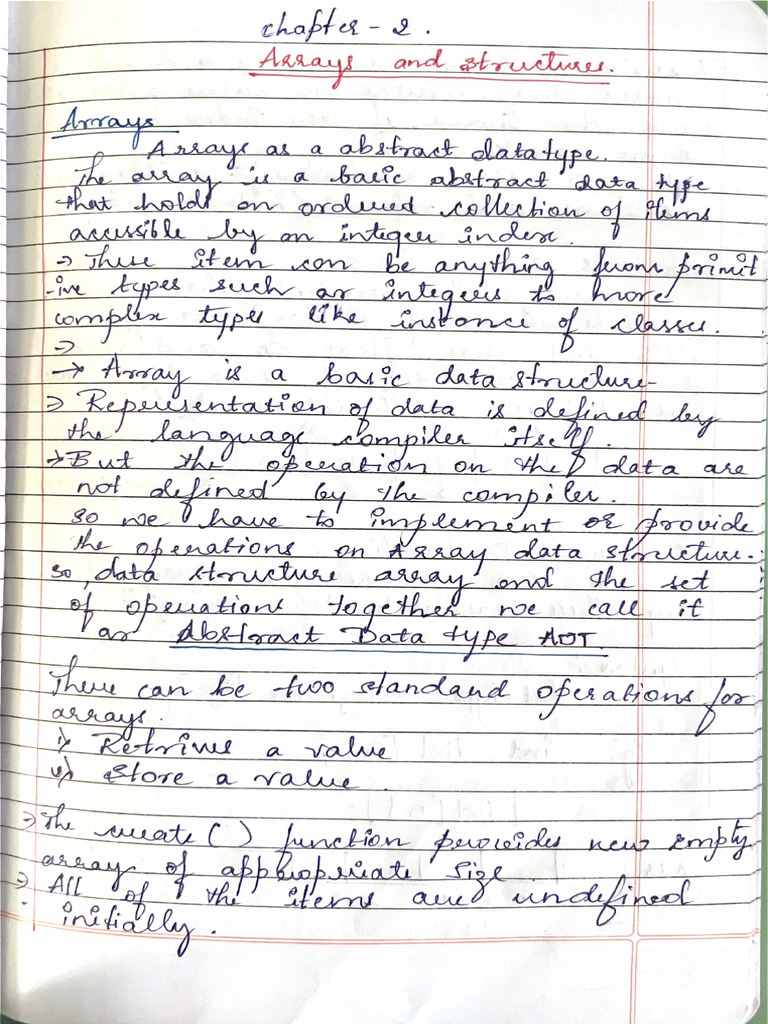 chapter - 2.
Arrays and structures.
Arrays
Arrays as a abstract datatype.
The array is a basic abstract data type
that holds an ordered collection of items
accessible by an integer index.
→ These item can be anything from primit
-ive types such as integers to more
complex types like instance of classes.
⇒
→ Array is a basic data structure-
⇒ Representation of data is defined by
the language compiler itself.
→ But the operation on the data are
not defined by the compiler.
so we have to implement or provide
the operations on Array data structure.
so, data structure array and the set
of operations together we call it
as Abstract Data type ADT.
There can be two standard operations for
arrays.
i) Retrives a value
ii) Store a value.
⇒ The create() function provides new Empty
array of appropriate Size.
⇒ All of the items are undefined
initially.